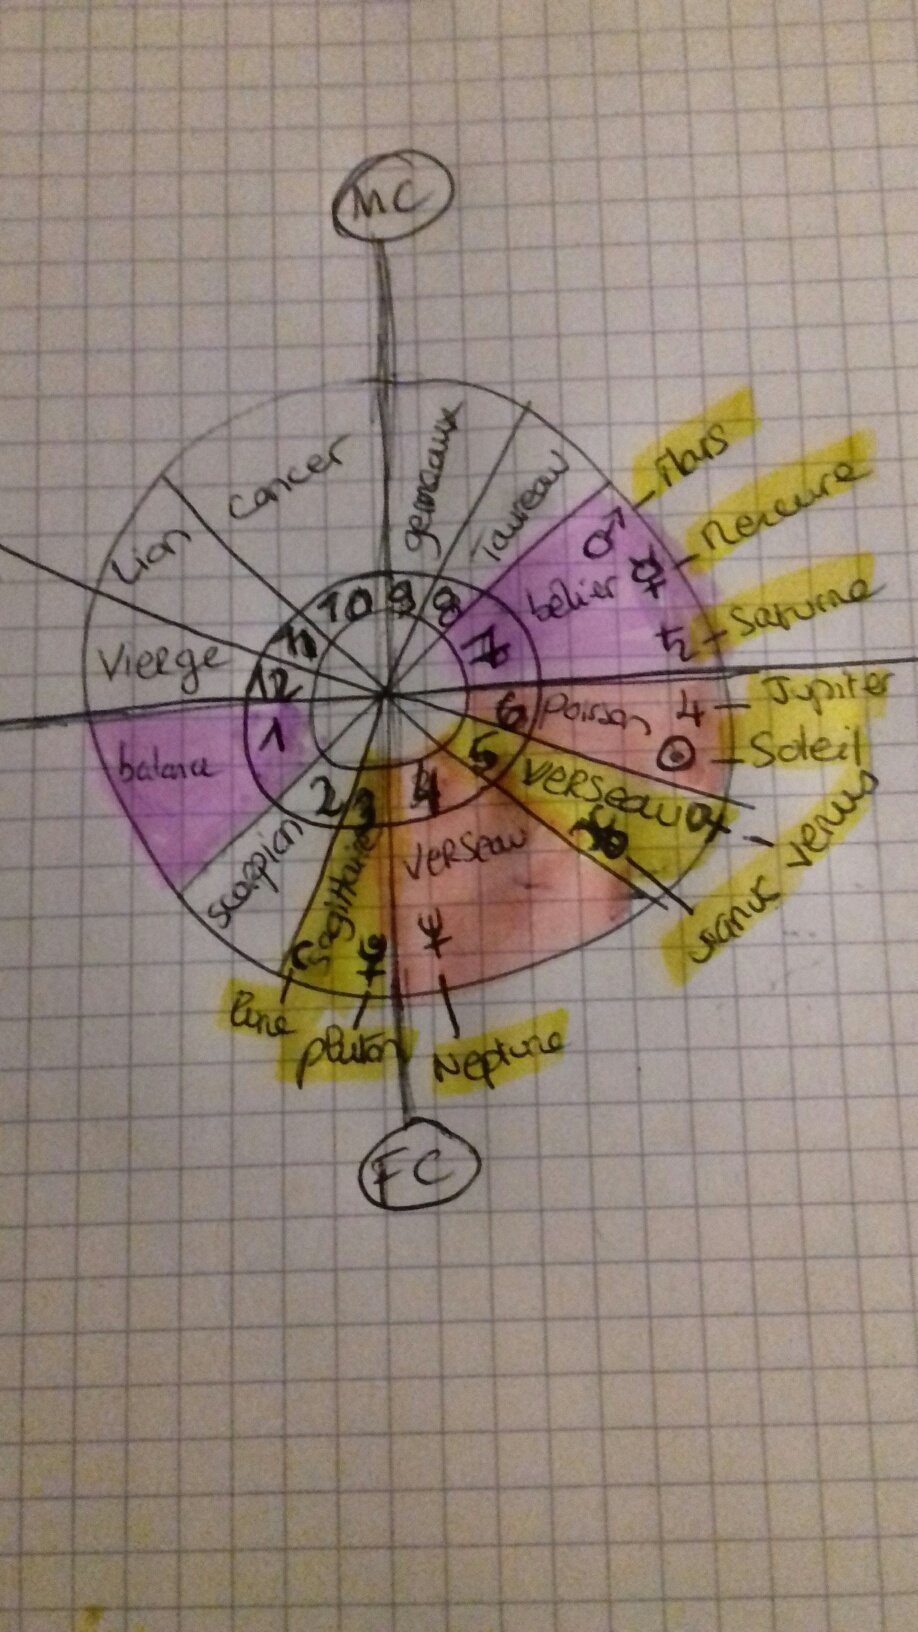 MC
Cancer
gemeaux
Lion
Taureau
Mars
Mercure
belier
Saturne
Vierge
10
9
8
11
7
12
6
Poisson
Jupiter
Soleil
1
balance
5
Verseau
venus
2
3
4
scorpion
Sagittaire
Verseau
uranus
lune
pluton
Neptune
FC